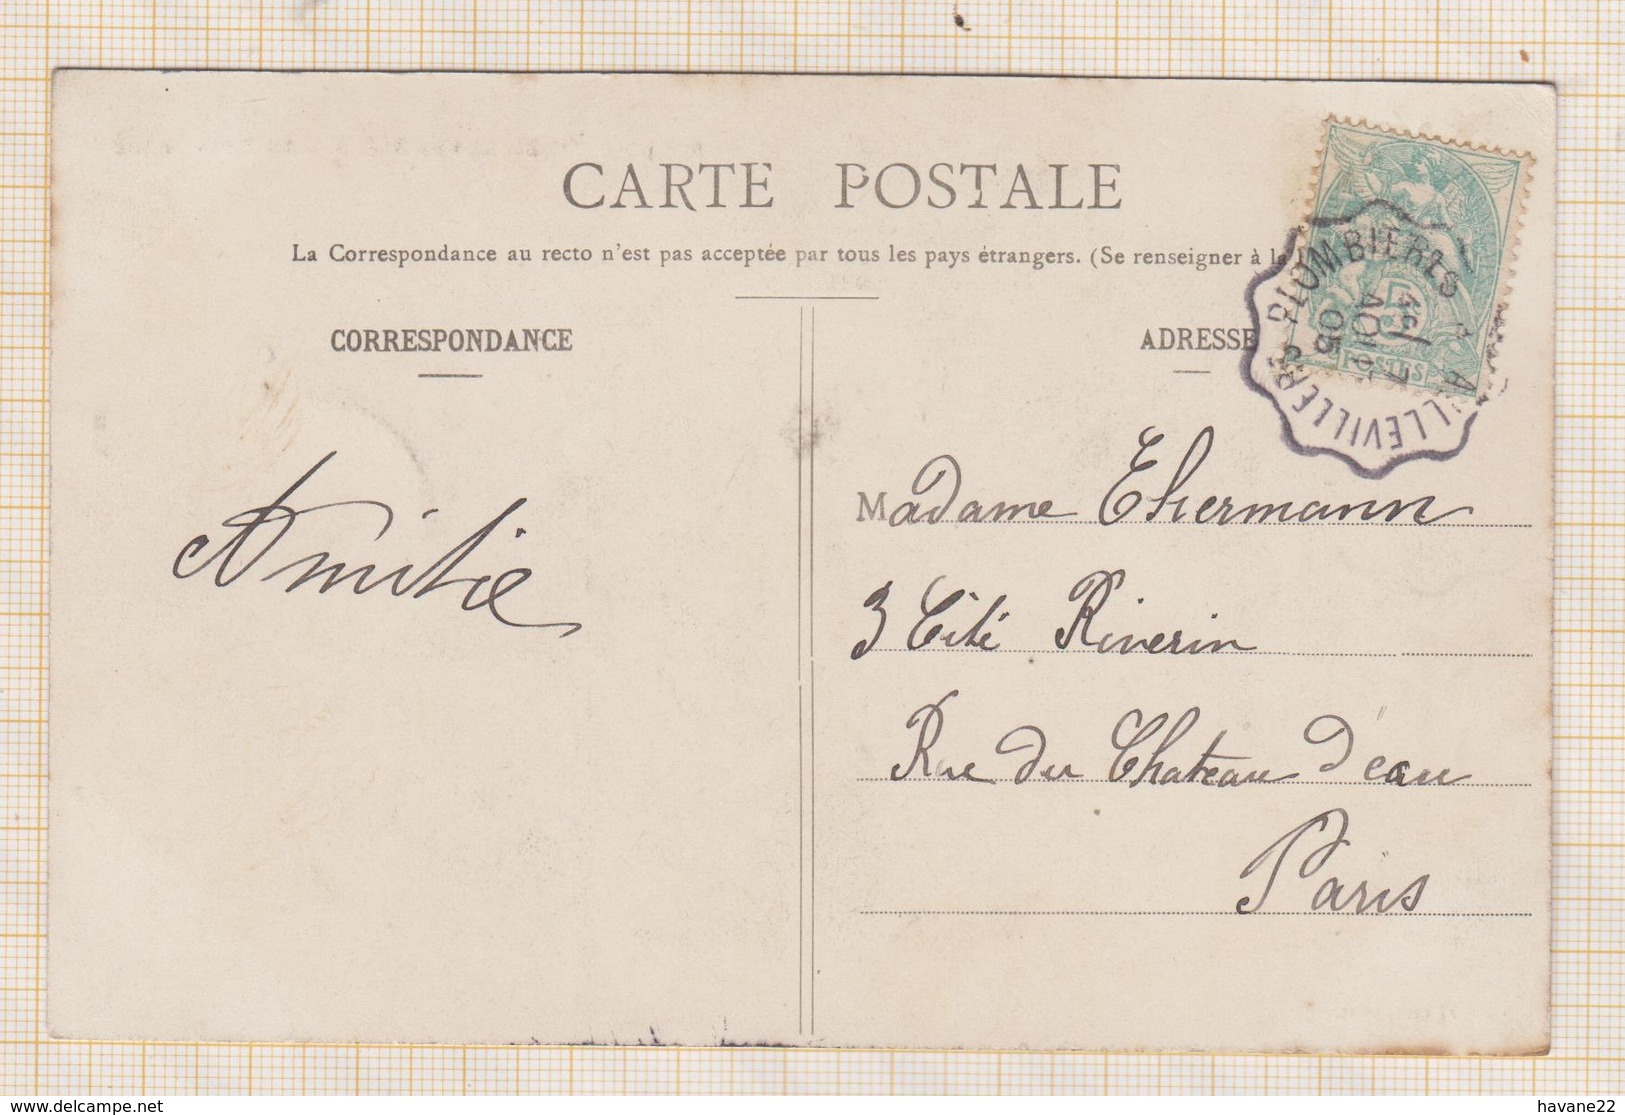 CARTE POSTALE
La Correspondance au recto n'est pas acceptée par tous les pays étrangers. (Se renseigner à la
CORRESPONDANCE
ADRESSE
PLOMBIERES A AILLEVILLERS
7 AOUT 05
5
POSTES
Amitié
Madame Ehermann
3 Cité Riverin
Rue du Chateau d'eau
Paris
www.delcampe.net
havane22